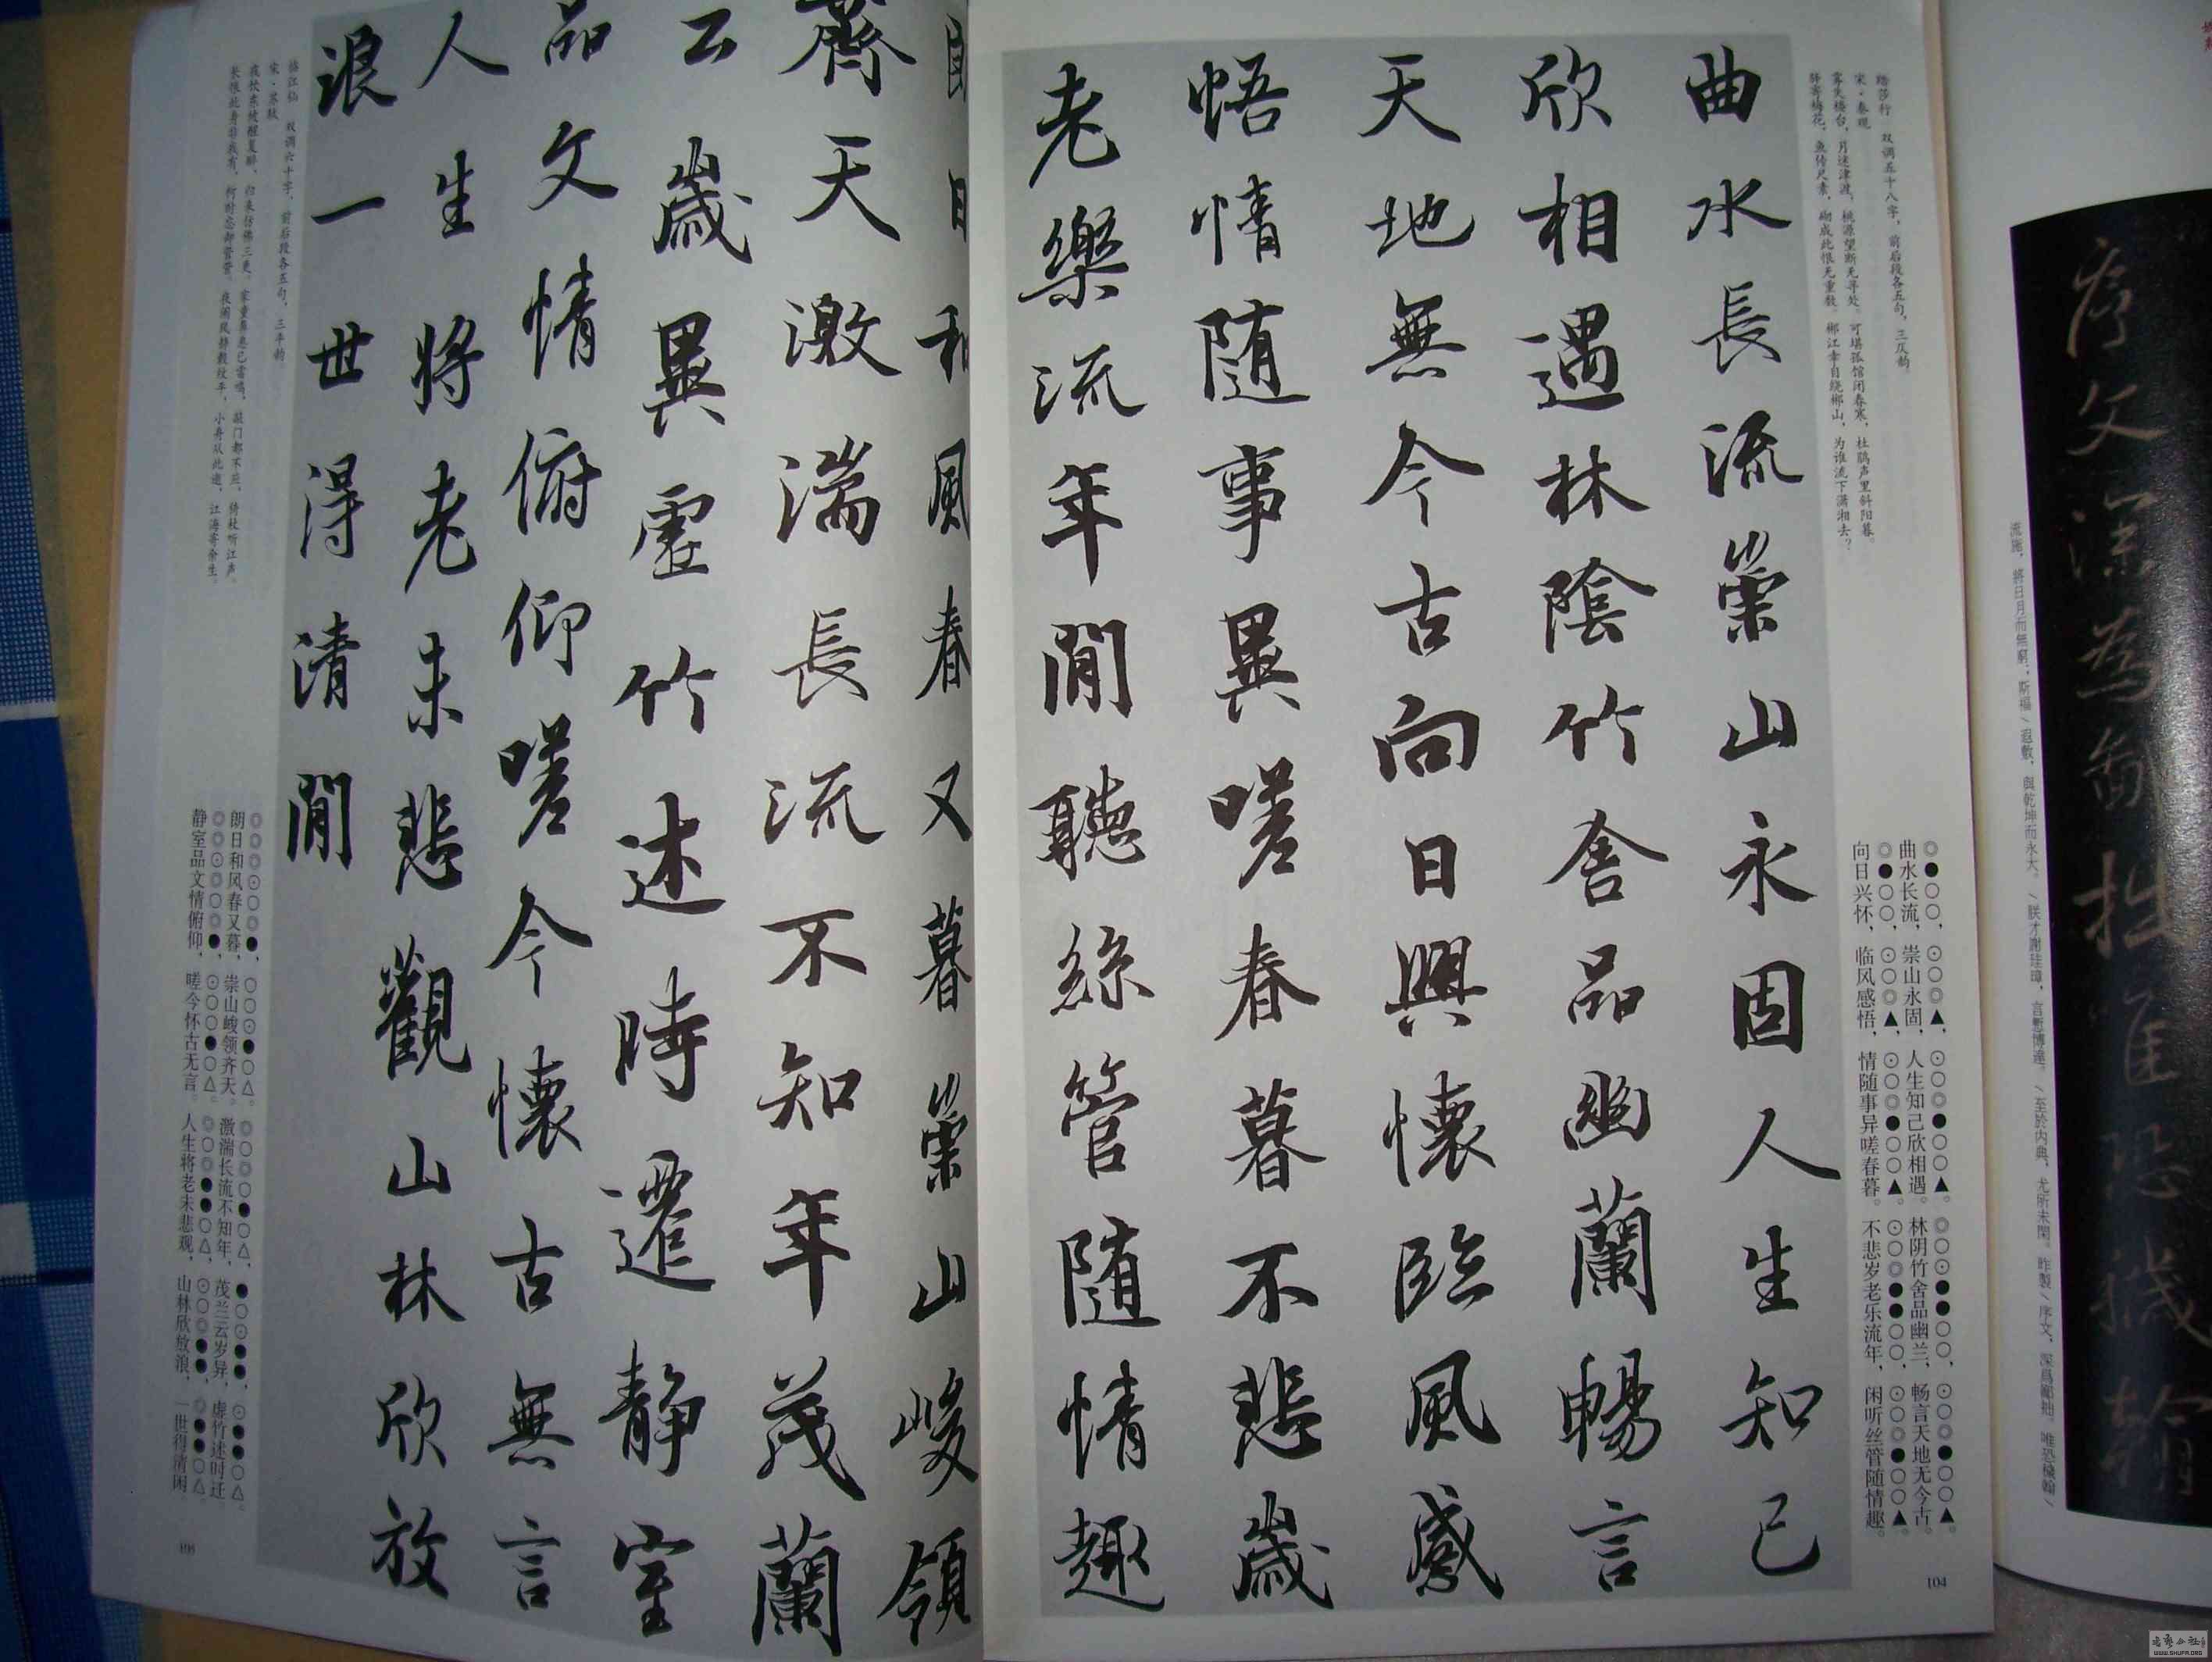 踏莎行 双调五十八字，前后段各五句，三仄韵。
宋·秦观
雾失楼台，月迷津渡，桃源望断无寻处。可堪孤馆闭春寒，杜鹃声里斜阳暮。
驿寄梅花，鱼传尺素，砌成此恨无重数。郴江幸自绕郴山，为谁流下潇湘去？
曲水長流崇山永固人生知己
欣相遇林陰竹舍品幽蘭暢言
天地無今古向日興懷臨風感
悟情随事異嗟春暮不悲歲
老樂流年閒聽絲管随情趣
◎●○○，⊙○○◎▲，⊙○○◎●○○▲。◎○○⊙●●○○，⊙○○◎●○○▲。
曲水长流，崇山永固，人生知己欣相遇。林阴竹舍品幽兰，畅言天地无今古。
向日兴怀，临风感悟，情随事异嗟春暮。不悲岁老乐流年，闲听丝管随情趣。
104
朗日和風春又暮崇山峻領
齊天激湍長流不知年茂蘭
云歲異虛竹述時遷静室
品文情俯仰嗟今懷古無言
人生將老未悲觀山林欣放
浪一世得清閒
临江仙 双调六十字，前后段各五句，三平韵。
宋·苏轼
夜饮东坡醒复醉，归来仿佛三更。家童鼻息已雷鸣，敲门都不应，倚杖听江声。
长恨此身非我有，何时忘却营营。夜阑风静縠纹平，小舟从此逝，江海寄余生。
朗日和风春又暮，崇山峻领齐天。激湍长流不知年，茂兰云岁异，虚竹述时迁。
静室品文情俯仰，嗟今怀古无言。人生将老未悲观，山林欣放浪，一世得清闲。
序文深為鄙拙唯恐機翰
流施，將日月而無窮；斯福遐敷，與乾坤而永大。朕才謝珪璋，言慙博達。至於内典，尤所未閑。昨製序文，深爲鄙拙。唯恐機翰
WWW.SHUFA.ORG